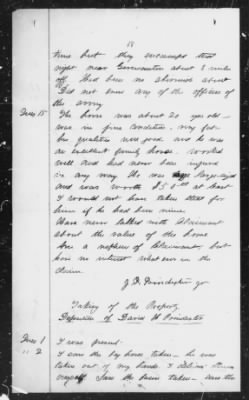 18
time but they encamped that
night near Germantown about 8 miles
off. Had been no absence about
Did not know any of the officers of
the army
Ques 15 The horse was about 20 yrs old -
was in fine condition, very fat
his qualities was good and he was
an excellent family horse - worked
well and had never been injured
in any way He was large sized
and was worth $150 at least
I would not have taken that for
him if he had been mine.
Have never talked with Claimant
about the value of the horse
Am a nephew of Claimant, but
have no interest whatever in the
claim.
J. D. Poindexter Jr
Taking of the Property
Deposition of David H Poindexter
Ques 1 I was present.
" 2 I saw the bay horse taken - he was
taken out of my hands. I
myself saw the taken - saw the